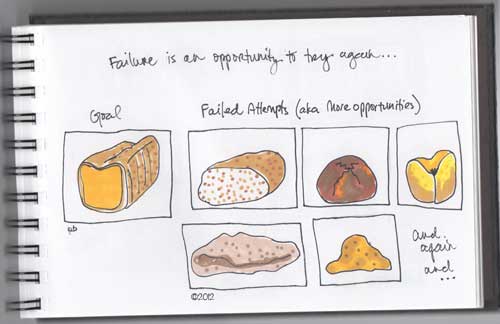 Failure is an opportunity to try again...
Goal
Failed Attempts (aka More opportunities)
and
again
and
...
©2012